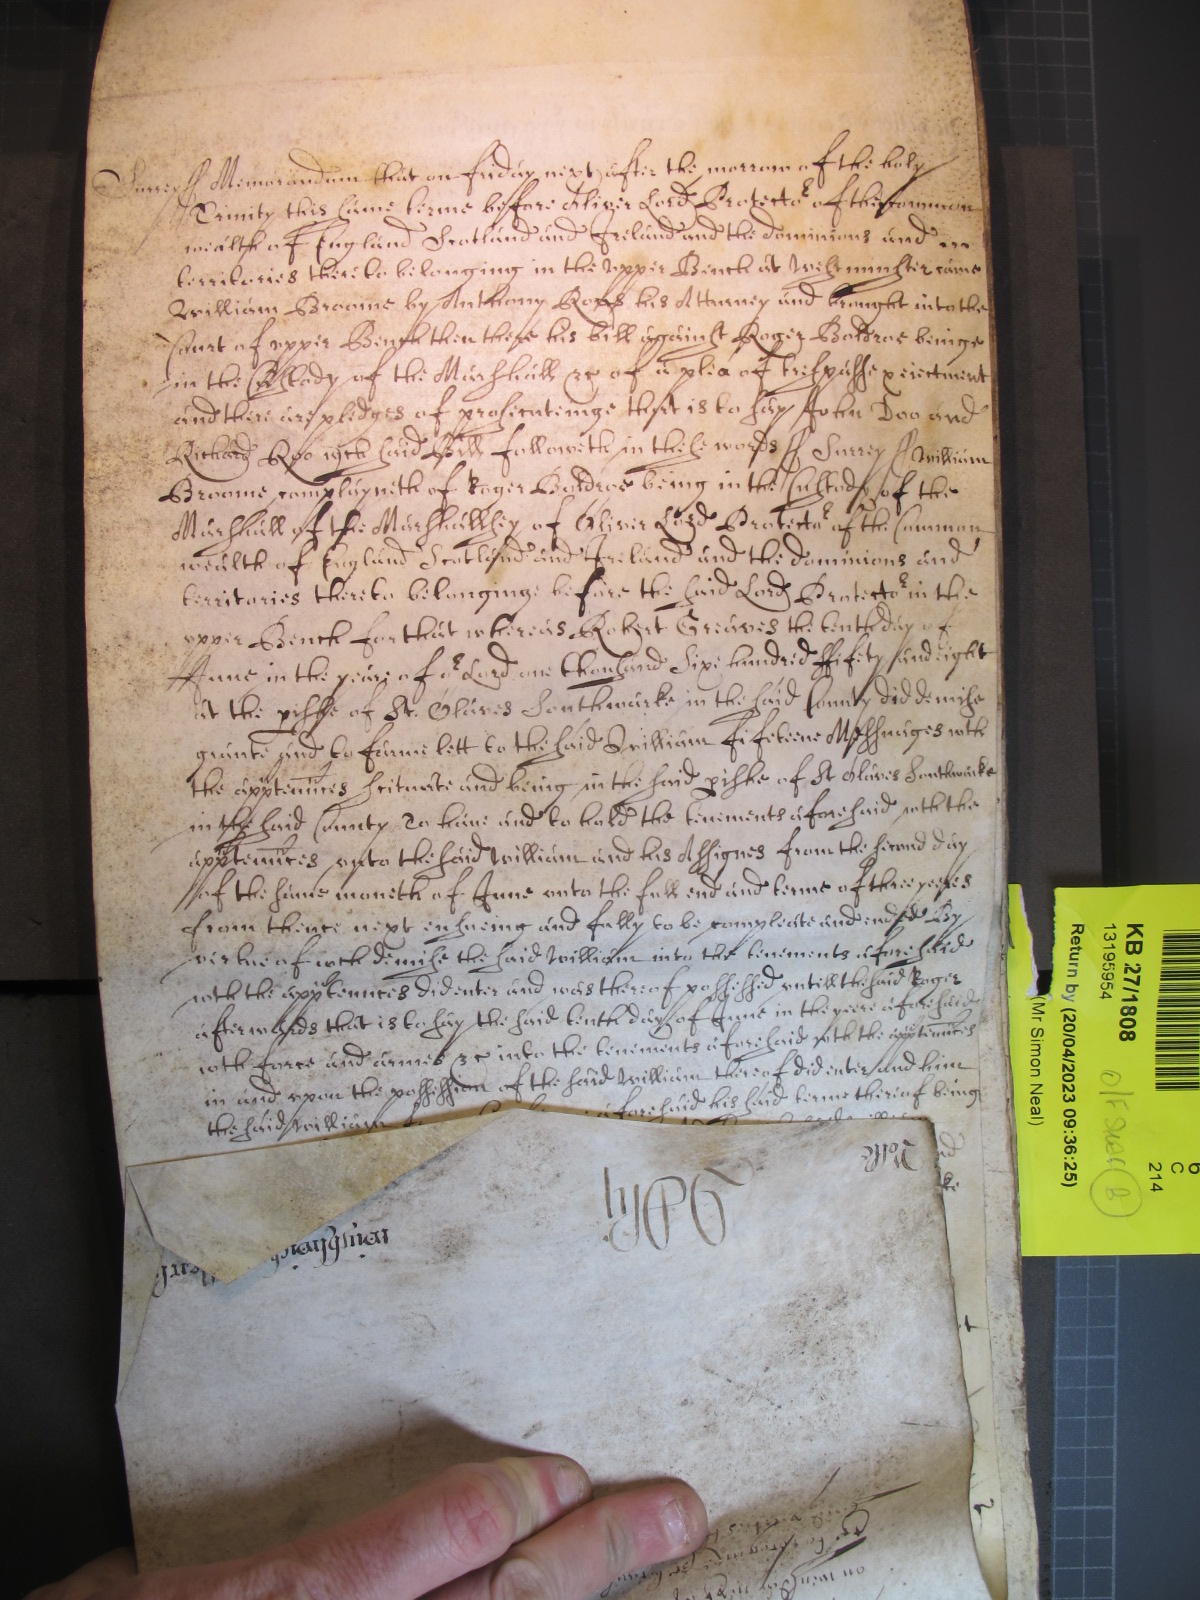 Surrey ss Memorandum that on friday next after the morrow of the holy
Trinity this same terme before Oliver Lord Protector of the Common
wealth of England Scotland and Ireland and the dominions and
territories thereto belonging in the upper Bench at Westminster came
William Broome by Anthony Rous his Atturney and brought into the
Court of upper Bench then there his bill against Roger Boldroe beinge
in the Custody of the Marshall &c of a plea of trespasse & eiectment
and there are pledges of prosecuteinge that is to say John Doo and
Richard Roo wch said Bill followeth in these words ss Surrey ss William
Broome complayneth of Roger Boldroe being in the Custody of the
Marshall of the Marshallsey of Oliver Lord Protector of the Common
wealth of England Scotland and Ireland and the dominions and
territories thereto belonginge before the said Lord Protector in the
upper Bench for that whereas Robert Greaves the tenth day of
June in the yeare of or Lord one thousand Sixe hundred ffifety and eight
at the pishe of St. Olaves Southwarke in the said County did demise
grante and to farme lett to the said William fifeteene Messuages wth
the apptennces scituate and being in the said pishe of St Olaves Southwarke
in the said County To have and to hold the tenements aforesaid wth the
apptennces unto the said William and his Assignes from the second day
of the same moneth of June unto the full end and terme of three yeares
from thence next ensueing and fully to be compleate and ended By
vertue of wch demise the said William into the tenements aforesaid
wth the apptennces did enter and was thereof possessed untill the said Roger
afterwards that is to say the said tenth day of June in the yeere aforesaid
wth force and armes &c into the tenements aforesaid wth the apptennces
in and upon the possession of the said William thereof did enter and him
the said William aforesaid his said terme thereof being
KB 27/1808
13195954
Return by (20/04/2023 09:36:25)
(Mr Simon Neal)
6
C
214